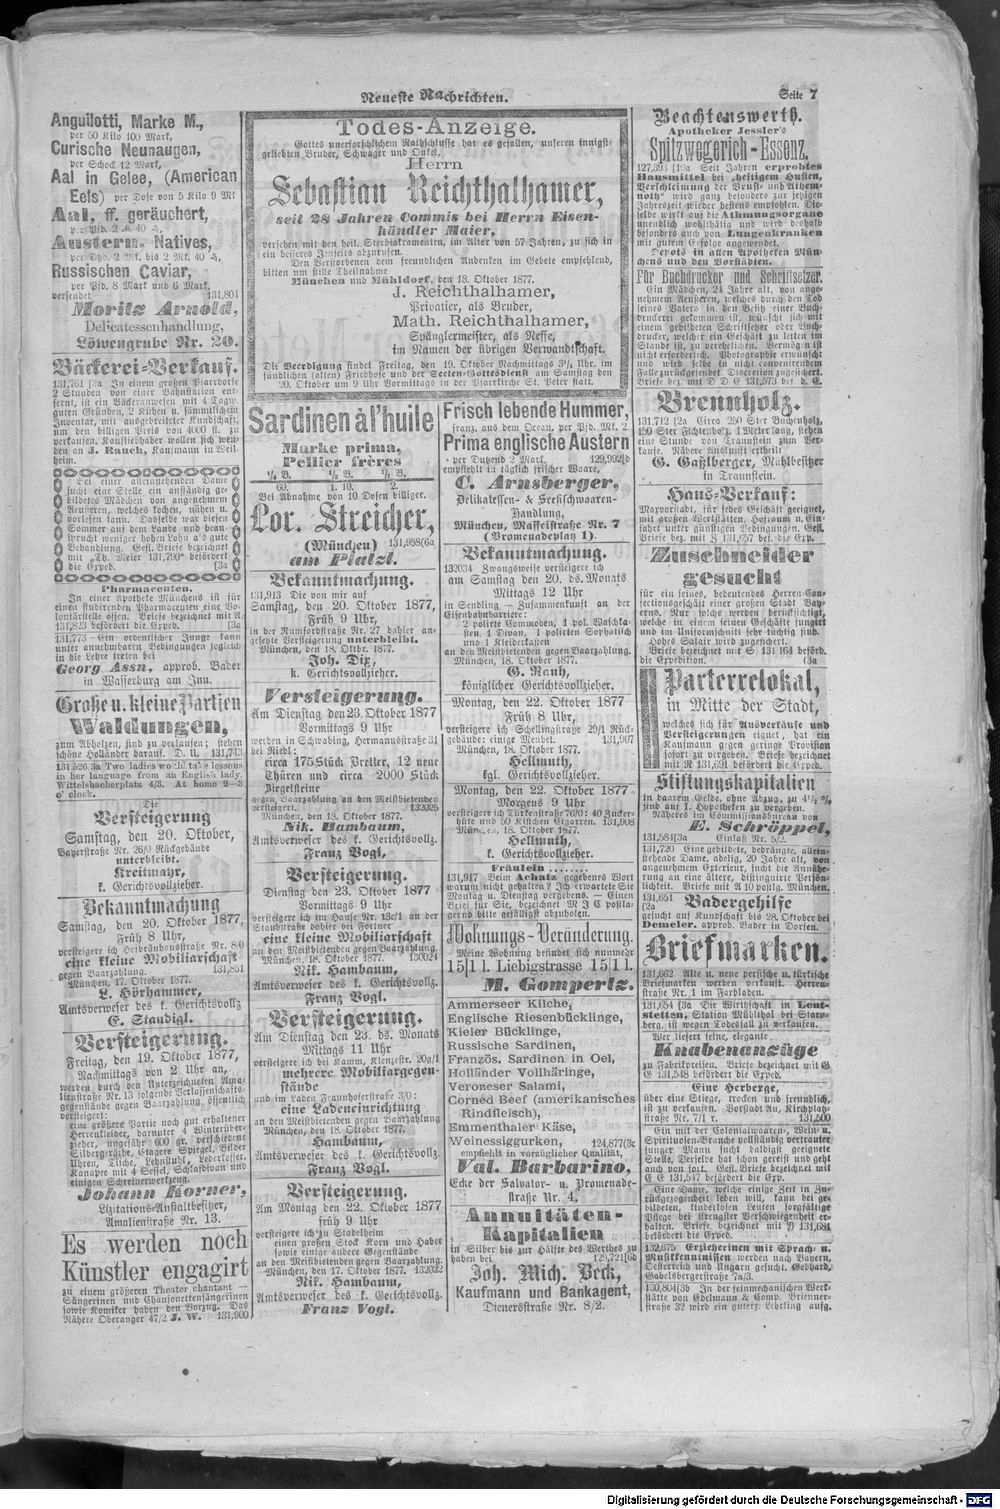 Neueste Nachrichten.
Seite 7
Anguilotti, Marke M.,
per 50 Kilo 100 Mark,
Curische Neunaugen,
per Schock 12 Mark,
Aal in Gelee, (American
Eels) per Dose von 5 Kilo 9 Mk
Aal, ff. geräuchert,
Austern, Natives,
per Dtzd. 2 Mk. bis 2 Mk. 40 ₰,
Russischen Caviar,
per Pfd. 8 Mark und 6 Mark,
versendet 131,801
Moritz Arnold,
Delicatessenhandlung,
Löwengrube Nr. 20.
Bäckerei-Verkauf.
131,761 [3a In einem großen Pfarrdorfe
2 Stunden von einer Bahnstation ent-
fernt, ist ein Bäckeranwesen mit 4 Tagw.
guten Gründen, 2 Kühen u. sämmtlichem
Inventar, mit ausgebreiteter Kundschaft,
um den billigen Preis von 4000 fl. zu
verkaufen. Kaufsliebhaber wollen sich wen-
den an J. Rauch, Kaufmann in Weil-
heim.
Bei einer alleinstehenden Dame
sucht eine Stelle ein anständig ge-
bildetes Mädchen von angenehmem
Aeußeren, welches kochen, nähen u.
vorlesen kann. Dasselbe war diesen
Sommer auf dem Lande und bean-
sprucht weniger hohen Lohn als gute
Behandlung. Gefl. Briefe bezeichnet
mit „Th. Meier 131,790“ befördert
die Exped. [3a
Pharmaceuten.
In einer Apotheke Münchens ist für
einen studirenden Pharmaceuten eine Vo-
lontärstelle offen. Briefe bezeichnet mit A
131,823 befördert die Exped. [3a
131,773 Ein ordentlicher Junge kann
unter annehmbaren Bedingungen sogleich
in die Lehre treten bei
Georg Assn, approb. Bader
in Wasserburg am Inn.
Große u. kleine Partien
Waldungen,
zum Abholzen, sind zu verkaufen; stehen
schöne Holländer darauf. D. U. 131,743
131,526 3a Two ladies would take lessons
in her language from an English lady.
Wittelsbacherplatz 4/3. At home 2—3
o' clock.
Die
Versteigerung
Samstag, den 20. Oktober,
Bayerstraße Nr. 26/0 Rückgebäude
unterbleibt.
Kreitmayr,
k. Gerichtsvollzieher.
Bekanntmachung
Samstag, den 20. Oktober 1877,
Früh 8 Uhr,
versteigere ich Herbräubausstraße Nr. 8/0
eine kleine Mobiliarschaft
gegen Baarzahlung. 131,851
München, 17. Oktober 1877.
L. Hörhammer,
Amtsverweser des k. Gerichtsvollz
E. Standigl.
Versteigerung.
Freitag, den 19. Oktober 1877,
Nachmittags von 2 Uhr an,
werden durch den Unterzeichneten Ama-
lienstraße Nr. 13 folgende Verlassenschafts-
gegenstände gegen Baarzahlung, öffentlich
versteigert:
eine größere Partie noch gut erhaltener
Herrenkleider, darunter 4 Winterüber-
zieher, ungefähr 600 gr. verschiedene
Silbergeräthe, Etagere, Spiegel, Bilder
Uhren, Tische, Lehnstuhl, Lederkoffer,
Kanapee mit 4 Sessel, Schlafdivan und
einigen Schreinerwerkzeug.
Johann Korner,
Lizitations-Anstaltbesitzer,
Amalienstraße Nr. 13.
Es werden noch
Künstler engagirt
zu einem größeren Theater chantant —
Sängerinnen und Chansonettensängerinen
sowie Komiker haben den Vorzug. Das
Nähere Oberanger 47/2 J. W. 131,900
Todes-Anzeige.
Gottes unerforschlichem Rathschlusse hat es gefallen, unseren innigst-
geliebten Bruder, Schwager und Onkel,
Herrn
Sebastian Reichthalhamer,
seit 28 Jahren Commis bei Herrn Eisen-
händler Maier,
versehen mit den heil. Sterbsakramenten, im Alter von 57 Jahren, zu sich in
ein besseres Jenseits abzurufen.
Den Verstorbenen dem freundlichen Andenken im Gebete empfehlend,
bitten um stille Theilnahme
München und Mühldorf, den 18. Oktober 1877.
J. Reichthalhamer,
Privatier, als Bruder,
Math. Reichthalhamer,
Spänglermeister, als Neffe,
im Namen der übrigen Verwandtschaft.
Die Beerdigung findet Freitag, den 19. Oktober Nachmittags 3¼ Uhr, im
südlichen (alten) Friedhofe und der Seelen-Gottesdienst am Samstag den
20. Oktober um 9 Uhr Vormittags in der Pfarrkirche St. Peter statt.
Sardinen à l'huile
Marke prima,
Pellier frères
¼ B. ½ B. ¹⁄₁ B.
60. 1. 10. 2.
Bei Abnahme von 10 Dosen billiger.
Lor. Streicher,
(München) 131,958(6a
am Platzl.
Bekanntmachung.
131,913 Die von mir auf
Samstag, den 20. Oktober 1877,
Früh 9 Uhr,
in der Rumfordstraße Nr. 27 dahier an-
gesetzte Versteigerung unterbleibt.
München, den 18. Oktbr. 1877.
Joh. Dix,
k. Gerichtsvollzieher.
Versteigerung.
Am Dienstag den 23. Oktober 1877
Vormittags 9 Uhr
werden in Schwabing, Hermannsstraße 31
bei Riedl:
circa 175 Stück Bretter, 12 neue
Thüren und circa 2000 Stück
Ziegelsteine
gegen Baarzahlung an den Meistbietenden
versteigert. 132025
München, den 18. Oktober 1877.
Nik. Hambaum,
Amtsverweser des k. Gerichtsvollz.
Franz Vogl.
Versteigerung.
Dienstag den 23. Oktober 1877
Vormittags 9 Uhr
versteigere ich im Hause Nr. 13c/1 an der
Staubstraße dahier bei Fortner
eine kleine Mobiliarschaft
an den Meistbietenden gegen Baarzahlung.
München, 18. Oktober 1877. 130024
Nik. Hambaum,
Amtsverweser des k. Gerichtsvollz.
Franz Vogl.
Versteigerung.
Am Dienstag den 23. ds. Monats
Mittags 11 Uhr
versteigere ich bei Kamm, Klenzestr. 20g/1
mehrere Mobiliargegen-
stände
und im Laden Fraunhoferstraße 3/0:
eine Ladeneinrichtung
an den Meistbietenden gegen Baarzahlung
München, den 18. Oktober 1877.
Hambaum,
Amtsverweser des k. Gerichtsvollz.
Franz Vogl.
Versteigerung.
Am Montag den 22. Oktober 1877
früh 9 Uhr
versteigere ich zu Stadelheim
einen großen Stock Korn und Haber
sowie einige andere Gegenstände
an den Meistbietenden gegen Baarzahlung.
München, den 17. Oktober 1877. 132032
Nik. Hambaum,
Amtsverweser des k. Gerichtsvollz.
Franz Vogl.
Frisch lebende Hummer,
franz. aus dem Ocean, per Pfd. Mk. 2,
Prima englische Austern
per Dutzend 2 Mark, 129,992[b
empfiehlt in täglich frischer Waare,
C. Arnsberger,
Delikatessen- & Seefischwaaren-
Handlung,
München, Maffeistraße Nr. 7
(Promenadeplatz 1).
Bekanntmachung.
132034 Zwangsweise versteigere ich
am Samstag den 20. ds. Monats
Mittags 12 Uhr
in Sendling — Zusammenkunft an der
Eisenbahnbarriere:
2 polirte Commoden, 1 pol. Waschka-
sten, 1 Divan, 1 polirten Sophatisch
und 1 Kleiderkasten
an den Meistbietenden gegen Baarzahlung.
München, 18. Oktober 1877.
G. Rauh,
königlicher Gerichtsvollzieher.
Montag, den 22. Oktober 1877
Früh 8 Uhr,
versteigere ich Schellingstraße 29/1 Rück-
gebäude: einige Möbel. 131,907
München, 18. Oktober 1877.
Hellmuth,
kgl. Gerichtsvollzieher.
Montag, den 22. Oktober 1877
Morgens 9 Uhr
versteigere ich Türkenstraße 76/0: 40 Zucker-
hüte und 50 Kistchen Cigarren. 131,908
München, 18. Oktober 1877.
Hellmuth,
k. Gerichtsvollzieher.
Fräulein ........
131,917 Beim Achatz gegebenes Wort
warum nicht gehalten? Ich erwartete Sie
Montag u. Dienstag vergebens. — Einen
Brief für Sie, bezeichnet M J C postla-
gernd bitte gefälligst abzuholen.
Wohnungs-Veränderung.
Meine Wohnung befindet sich nunmehr
15|1 l. Liebigstrasse 15|1 l.
M. Gompertz.
Ammerseer Kilche,
Englische Riesenbücklinge,
Kieler Bücklinge,
Russische Sardinen,
Französ. Sardinen in Oel,
Holländer Vollhäringe,
Veroneser Salami,
Corned Beef (amerikanisches
Rindfleisch),
Emmenthaler Käse,
Weinessiggurken, 124,877(3c
empfiehlt in vorzüglicher Qualität,
Val. Barbarino,
Ecke der Salvator- u. Promenade-
straße Nr. 4.
Annuitäten-
Kapitalien
in Silber bis zur Hälfte des Werthes zu
haben bei 129,721[6b
Joh. Mich. Beck,
Kaufmann und Bankagent,
Dienersstraße Nr. 8/2.
Beachtenswerth.
Apotheker Jessler's
Spitzwegerich-Essenz.
127,393 [10a Seit Jahren erprobtes
Hausmittel bei „heftigem Husten,
Verschleimung der Brust- und Athem-
noth“ wird ganz besonders zur jetzigen
Jahreszeit wieder bestens empfohlen. Die-
selbe wirkt auf die Athmungsorgane
unendlich wohlthätig und wird deshalb
besonders auch von Lungenkranken
mit gutem Erfolge angewendet.
Depots in allen Apotheken Mün-
chens und den Vorstädten.
Für Buchdrucker und Schriftsetzer.
Ein Mädchen, 24 Jahre alt, von ange-
nehmem Aeußeren, welches durch den Tod
seines Vaters in den Besitz einer Buch-
druckerei gekommen ist, wünscht sich mit
einem gebildeten Schriftsetzer oder Buch-
drucker, welcher ein Geschäft zu leiten im
Stande ist, zu verehelichen. Vermögen ist
nicht erforderlich. Photographie erwünscht
und wird dieselbe in nicht convenirendem
Falle zurückgesendet. Discretion zugesichert.
Briefe bez. mit D D E 131,573 bef. d. E.
Brennholz.
131,712 [2a Circa 250 Ster Buchenholz,
100 Ster Fichtenholz, 1 Meter lang, stehen
eine Stunde von Traunstein zum Ver-
kaufe. Nähere Auskunft ertheilt
G. Gaßlberger, Mühlbesitzer
in Traunstein.
Haus-Verkauf:
Mayvorstadt, für jedes Geschäft geeignet,
mit großen Werkstätten, Hofraum u. Ein-
fahrt unter günstigen Bedingungen. Gefl.
Briefe bez. mit Z 131,657 bef. die Exp.
Zuschneider
gesucht
für ein feines, bedeutendes Herren-Con-
fectionsgeschäft einer großen Stadt Bay-
erns. Nur solche werden berücksichtigt,
welche in einem feinen Geschäfte fungirt
und im Uniformschnitt sehr tüchtig sind.
Hohes Salair wird zugesichert.
Briefe bezeichnet mit S 131 164 beförd.
die Expedition. (3a
Parterrelokal,
in Mitte der Stadt,
welches sich für Ausverkäufe und
Versteigerungen eignet, hat ein
Kaufmann gegen geringe Provision
sofort zu vergeben. Briefe bezeichnet
mit R 131,691 befördert die Exped.
Stiftungskapitalien
in baarem Gelde, ohne Abzug, zu 4½ %
sind auf 1. Hypotheken zu vergeben.
Näheres im Commissionsbureau von
E. Schröppel,
131,584[3a Einlaß Nr. 5/2.
131,720 Eine gebildete, bedrängte, allein-
stehende Dame, adelig, 20 Jahre alt, von
angenehmem Exterieur, sucht die Annähe-
rung an eine ältere, distinguirte Persön-
lichkeit. Briefe mit A 10 postlg. München.
131,651
[2a Badergehilfe
gesucht auf Kundschaft bis 28. Oktober bei
Demeler, approb. Bader in Dorfen.
Briefmarken.
131,662 Alte u. neue persische u. türkische
Briefmarken werden verkauft. Herren-
straße Nr. 1 im Farbladen.
131,654 [3a Die Wirthschaft in Leut-
stetten, Station Mühlthal bei Starn-
berg, ist wegen Todesfall zu verkaufen.
Wer liefert feine, elegante
Knabenanzüge
zu Fabrikpreisen. Briefe bezeichnet mit G
G 131,548 befördert die Exped.
Eine Herberge,
über eine Stiege, trocken und freundlich,
ist zu verkaufen. Vorstadt Au, Kirchplatz-
straße Nr. 7/1 r. 131,500
Ein mit der Colonialwaaren-, Wein- u.
Spirituosen-Branche vollständig vertrauter
junger Mann sucht baldigst geeignete
Stelle. Derselbe hat schon gereist und geht
auch von fort. Gefl. Briefe bezeichnet mit
E E 131,547 befördert die Exp.
Eine Dame, welche einige Zeit in Zu-
rückgezogenheit leben will, kann bei ge-
bildeten, kinderlosen Leuten sorgfältige
Pflege bei strengster Verschwiegenheit er-
halten. Briefe, bezeichnet mit D 131,684
befördert die Exped.
132,675 Erzieherinen mit Sprach- u.
Musikkenntnissen werden nach Bayern,
Oesterreich und Ungarn gesucht. Gebhard,
Gabelsbergerstraße 7a/3.
130,804 [3b In der feinmechanischen Werk-
stätte von Edelmann & Comp. Brienner-
straße 32 wird ein guterz. Lehrling aufg.
Digitalisierung gefördert durch die Deutsche Forschungsgemeinschaft - DFG